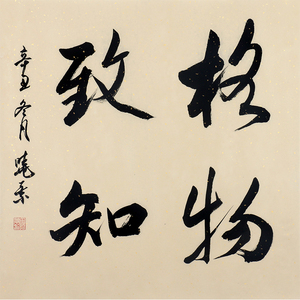 格物
致知
辛丑冬月